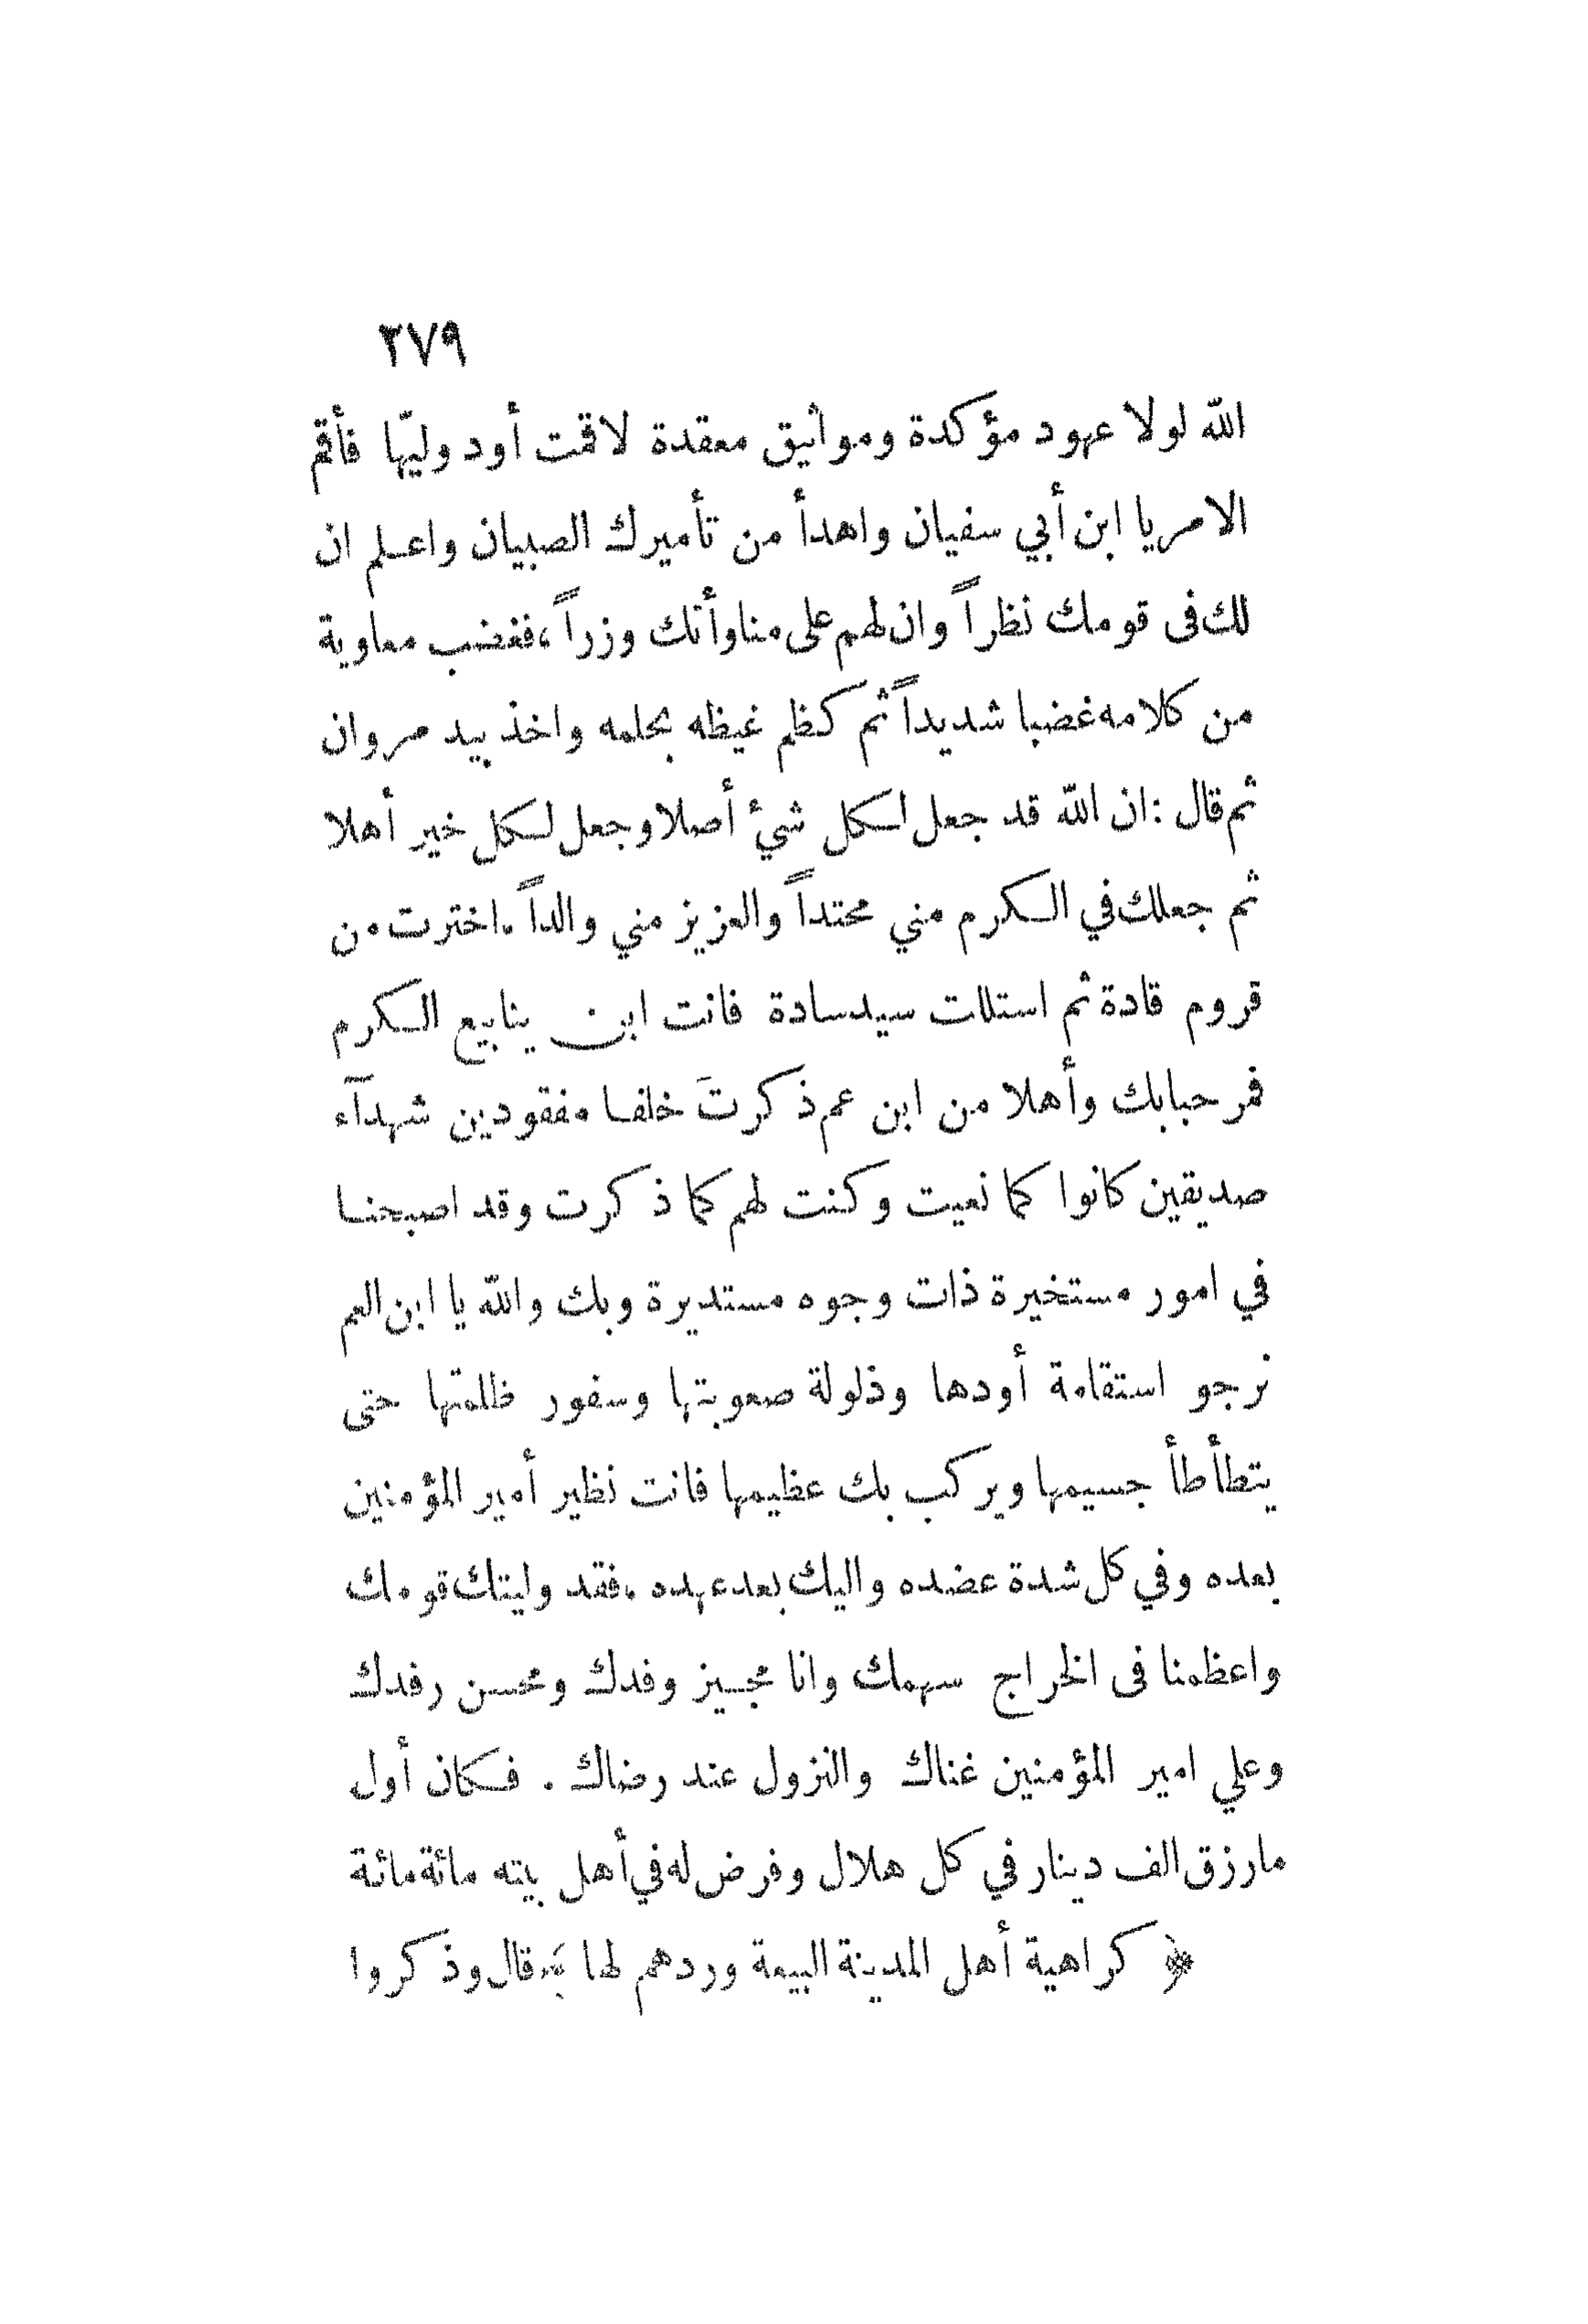 ٢٧٩
الله لولا عهود مؤكدة ومواثيق معقدة لاقمت أود وليّها فأقم
الامر يا ابن أبي سفيان واهدأ من تأميرك الصبيان واعلم ان
لك فى قومك نظراً وان لهم على مناوأتك وزراً ، فغضب معاوية
من كلامه غضبا شديداً ثم كظم غيظه بحلمه واخذ بيد مروان
ثم قال : ان الله قد جعل لكل شيْ أصلا وجعل لكل خير أهلا
ثم جعلك في الكرم مني محتداً والعزيز مني والداً . اخترت من
قروم قادة ثم استللت سيد سادة فانت ابن ينابيع الكرم
فمرحبا بك وأهلا من ابن عم ذكرتَ خلفا مفقودين شهدآء
صديقين كانوا كما نعيت وكنت لهم كما ذكرت وقد اصبحنا
في امور مستخيرة ذات وجوه مستديرة وبك والله يا ابن العم
نرجو استقامة أودها وذلولة صعوبتها وسفور ظلمتها حتى
يتطأطأ جسيمها ويركب بك عظيمها فانت نظير أمير المؤمنين
بعده وفي كل شدة عضده واليك بعد عهده . فقد وليتك قومك
واعظمنا فى الخراج سهمك وانا مجيز وفدك ومحسن رفدك
وعلي امير المؤمنين غناك والنزول عند رضاك . فكان أول
ما رزق الف دينار في كل هلال وفرض له في أهل بيته مائة مائة
﴿ كراهية أهل المدينة البيعة وردهم لها ﴾ قال وذكروا